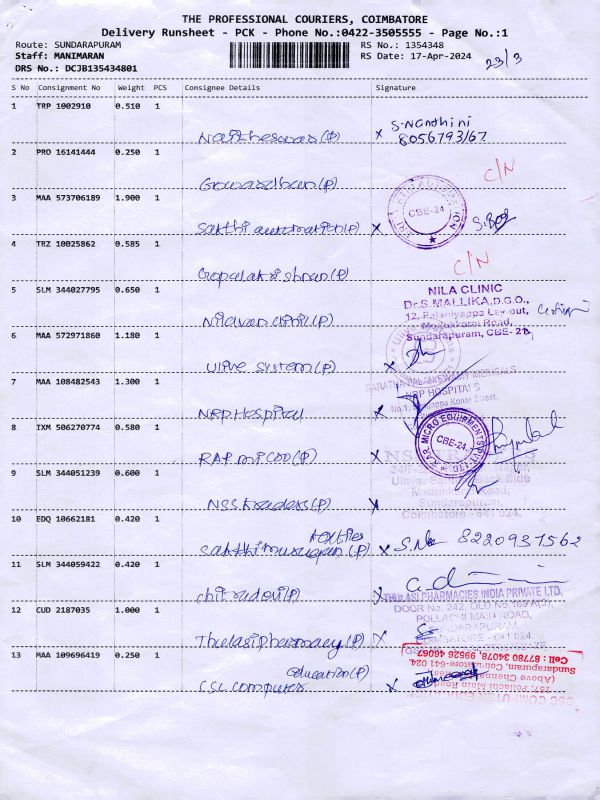 THE PROFESSIONAL COURIERS, COIMBATORE
Delivery Runsheet - PCK - Phone No.:0422-3505555 - Page No.:1
Route: SUNDARAPURAM RS No.: 1354348
Staff: MANIMARAN RS Date: 17-Apr-2024 23/3
DRS No.: DCJB135434801
S No Consignment No Weight PCS Consignee Details Signature
1 TRP 1002910 0.510 1
S. Nandhini
Naitheswar(P) x 8056793167
2 PRO 16141444 0.250 1
Gowardhan(P) C/N
3 MAA 573706189 1.900 1
CBE-24
Sakthi automation(P) x
4 TRZ 10025862 0.585 1
Gopalakrishnan(P) C/N
5 SLM 344027795 0.650 1
NILA CLINIC
Dr.S.MALLIKA,D.G.O.,
12, Palaniyappa Lay-out,
Madukkarai Road,
Sundarapuram, CBE-24
6 MAA 572971860 1.180 1
Ulive System(P) x
7 MAA 108482543 1.300 1
NRP HOSPITALS
NRP Hospital x
8 IXM 506270774 0.580 1
R.A.R. MICRO EQUIPMENTS (P) LTD.
CBE-24
RAR micoo(P) x
9 SLM 344051239 0.600 1
Road,
Sundarapuram,
Coimbatore - 641 024.
NSS traders(P) x
10 EDQ 10662181 0.420 1
textiles
Sakthimurugan(P) x S.No 8220937562
11 SLM 344059422 0.420 1
chitradevi(P) x
THULASI PHARMACIES INDIA PRIVATE LTD,
DOOR No. 242, OLD No.169A(3),
POLLACHI MAIN ROAD,
SUNDARAPURAM,
COIMBATORE - 641 024
12 CUD 2187035 1.000 1
Thulasi pharmacy(P) x
13 MAA 109696419 0.250 1
education(P)
CSC computer x
CSC COMPUTER EDUCATION
197, Pollachi Main Road
Sundarapuram, Coimbatore-641 024.
Cell : 87780 34078, 99526 46067